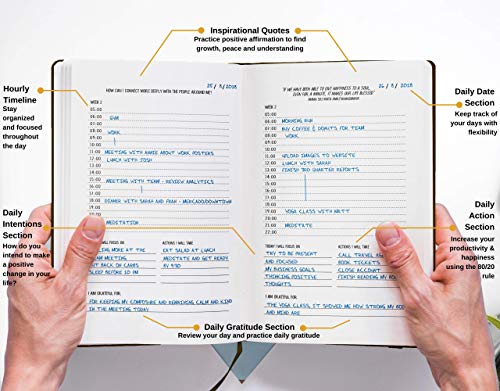 Inspirational Quotes
Practice positive affirmation to find
growth, peace and understanding
Hourly
Timeline
Stay
organized
and focused
throughout
the day
Daily
Intentions
Section
How do you
intend to make
a positive
change in your
life?
25 / 8 / 2018
HOW CAN I CONNECT MORE DEEPLY WITH THE PEOPLE AROUND ME?
WEEK 2
05:00
06:00
07:00 GYM
08:00
09:00 WORK
10:00
11:00 MEETING WITH ANNIE ABOUT WORK POSTERS
12:00 LUNCH WITH JOSH
13:00
14:00
15:00 MEETING WITH TEAM - REVIEW ANALYTICS
16:00
17:00
18:00 DINNER WITH SARAH AND FRAN - MERCADO/DOWNTOWN
19:00
MEDITATION
FOCUS ON
ACTIONS I WILL TAKE
MORE AT THE
EAT SALAD AT LUNCH
TEAM MEETING
MEDITATE AND GET READY
GET BACK ON CARBS
BY 9:30
SLEEP BEFORE 10 PM
I AM GRATEFUL FOR
FOR KEEPING MY COMPOSURE AND REMAINING CALM AND KIND
IN THE MEETING TODAY
26 / 8 / 2018
WEEK 2
05:00
06:00 MORNING RUN
07:00 BUY COFFEE & DONUTS FOR TEAM
08:00 WORK
09:00
10:00
11:00 UPLOAD IMAGES TO WEBSITE
12:00 LUNCH WITH SARAH
13:00 FINISH 3RD QUARTER REPORTS
14:00
15:00
16:00
17:00
18:00
19:00
20:00 YOGA CLASS WITH MATT
21:00
22:00 MEDITATE
TODAY I WILL FOCUS ON
ACTIONS I WILL TAKE
TRY TO BE PRESENT
CALL TRAVEL
AND FOCUSED
BOOK TICKETS
MY BUSINESS GOALS
CLOSE ACCOUNT
THINKING POSITIVE
FINISH READING MY
THOUGHTS
I AM GRATEFUL FOR
THE YOGA CLASS, IT SHOWED ME HOW STRONG MY
AND MIND ARE
Daily Date
Section
Keep track of
your days with
flexibility
Daily
Action
Section
Increase your
productivity &
happiness
using the 80/20
rule
Daily Gratitude Section
Review your day and practice daily gratitude